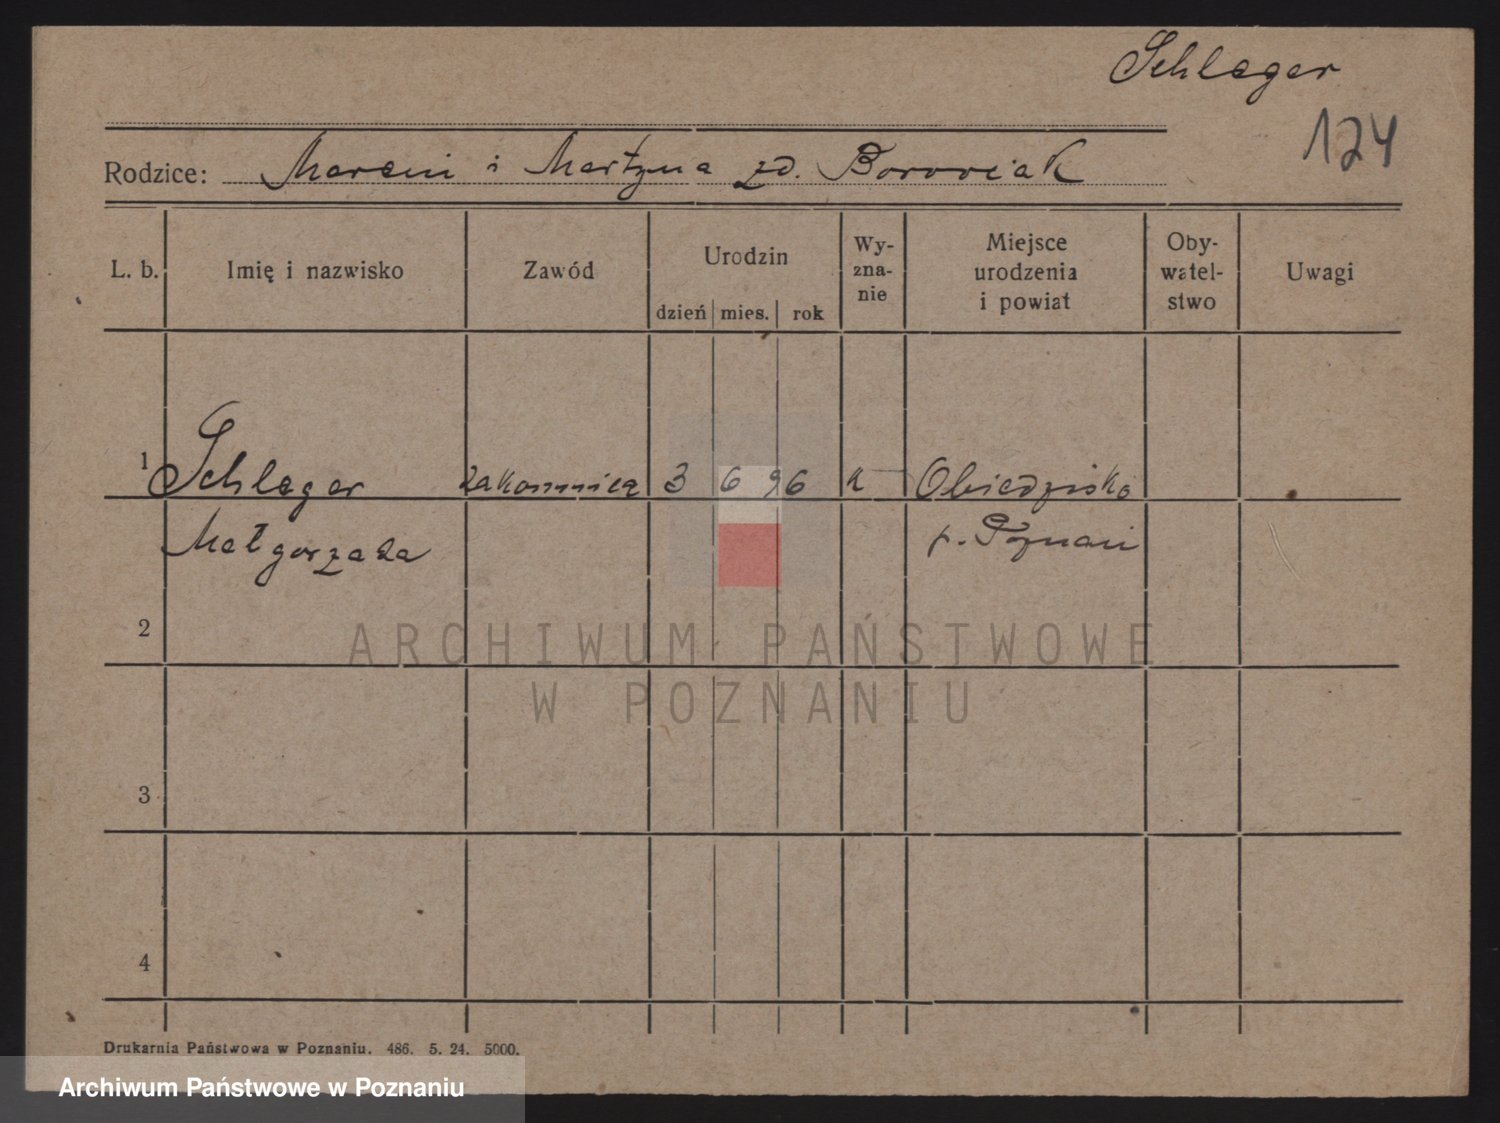 Schlager
124
Rodzice: Marcin i Martyna zd. Borowiak
L. b. Imię i nazwisko Zawód Urodzin Wy-zna-nie Miejsce urodzenia i powiat Oby-watel-stwo Uwagi
dzień mies. rok
1 Schlager zakonnica 3 6 96 k Obiedzisko
Małgorzata p. Poznań
2
ARCHIWUM PAŃSTWOWE
W POZNANIU
3
4
Drukarnia Państwowa w Poznaniu. 486. 5. 24. 5000.
Archiwum Państwowe w Poznaniu